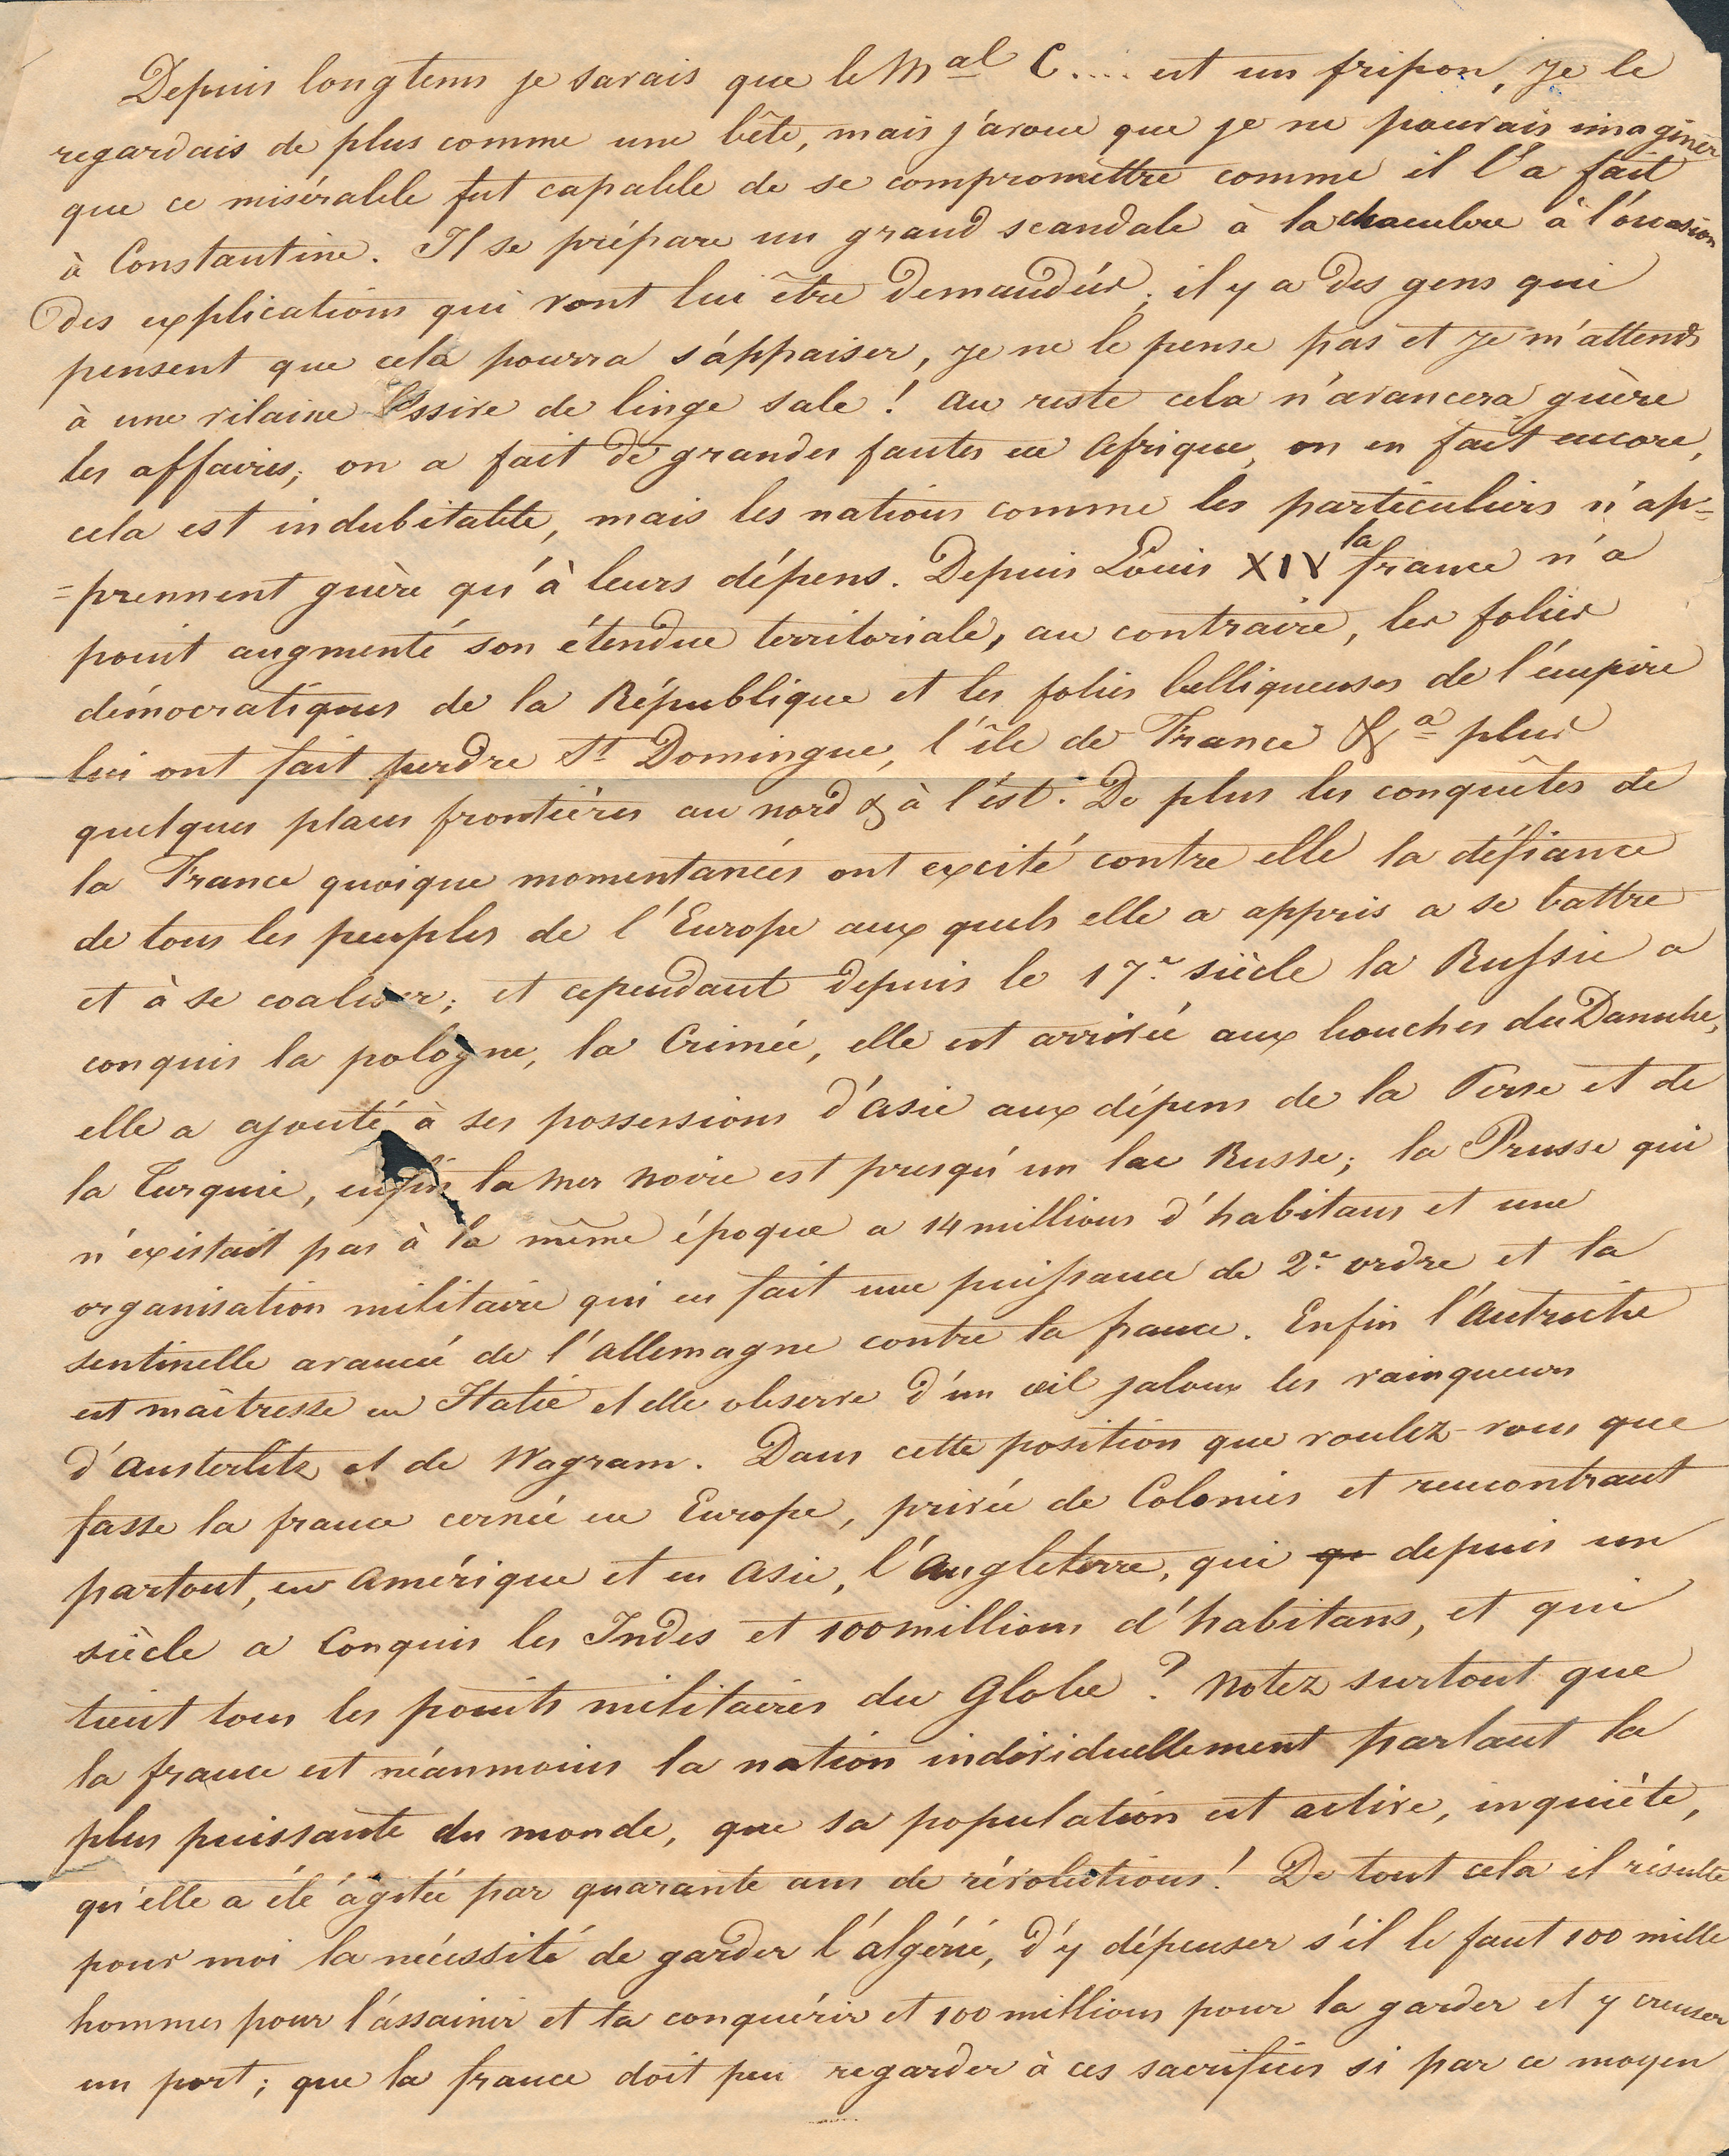 Depuis longtems je savais que le Mal C.... est un fripon, je le
regardais de plus comme une bête, mais j'avoue que je ne pouvais imaginer
que ce misérable fut capable de se compromettre comme il l'a fait
à Constantine. Il se prépare un grand scandale à la chambre à l'occasion
des explications qui vont lui être demandées; il y a des gens qui
pensent que cela pourra s'appaiser, je ne le pense pas et je m'attends
à une vilaine lessive de linge sale ! au reste cela n'avancera guère
les affaires; on a fait de grandes fautes en afrique, on en fait encore,
cela est indubitable, mais les nations comme les particuliers n'ap=
=prennent guère qu'à leurs dépens. Depuis Louis XIV la france n'a
point augmenté son étendue territoriale, au contraire, les folies
démocratiques de la République et les folies belliqueuses de l'empire
lui ont fait perdre St Domingue, l'île de France &a plus
quelques places frontières au nord & à l'est. De plus les conquêtes de
la France quoique momentanées ont excité contre elle la défiance
de tous les peuples de l'Europe aux quels elle a appris a se battre
et à se coaliser; et cependant depuis le 17e siècle la Russie a
conquis la pologne, la Crimée, elle est arrivée aux bouches du Danube,
elle a ajouté à ses possessions d'asie aux dépens de la Perse et de
la Turquie, enfin la mer noire est presqu'un lac Russe; la Prusse qui
n'existait pas à la même époque a 14 millions d'habitans et une
organisation militaire qui en fait une puissance de 2e ordre et la
sentinelle avancée de l'allemagne contre la france. Enfin l'autriche
est maîtresse en Italie et elle observe d'un œil jaloux les vainqueurs
d'austerlitz et de Wagram. Dans cette position que voulez-vous que
fasse la france cernée en Europe, privée de Colonies et rencontrant
partout, en amérique et en asie, l'angleterre, qui qu depuis un
siècle a Conquis les Indes et 100 millions d'habitans, et qui
tient tous les points militaires du Globe ? Notez surtout que
la france est néanmoins la nation individuellement parlant la
plus puissante du monde, que sa population est active, inquiète,
qu'elle a été agitée par quarante ans de révolutions ! De tout cela il résulte
pour moi la nécessité de garder l'algérie, d'y dépenser s'il le faut 100 mille
hommes pour l'assainir et la conquérir et 100 millions pour la garder et y creuser
un port; que la france doit peu regarder à ces sacrifices si par ce moyen